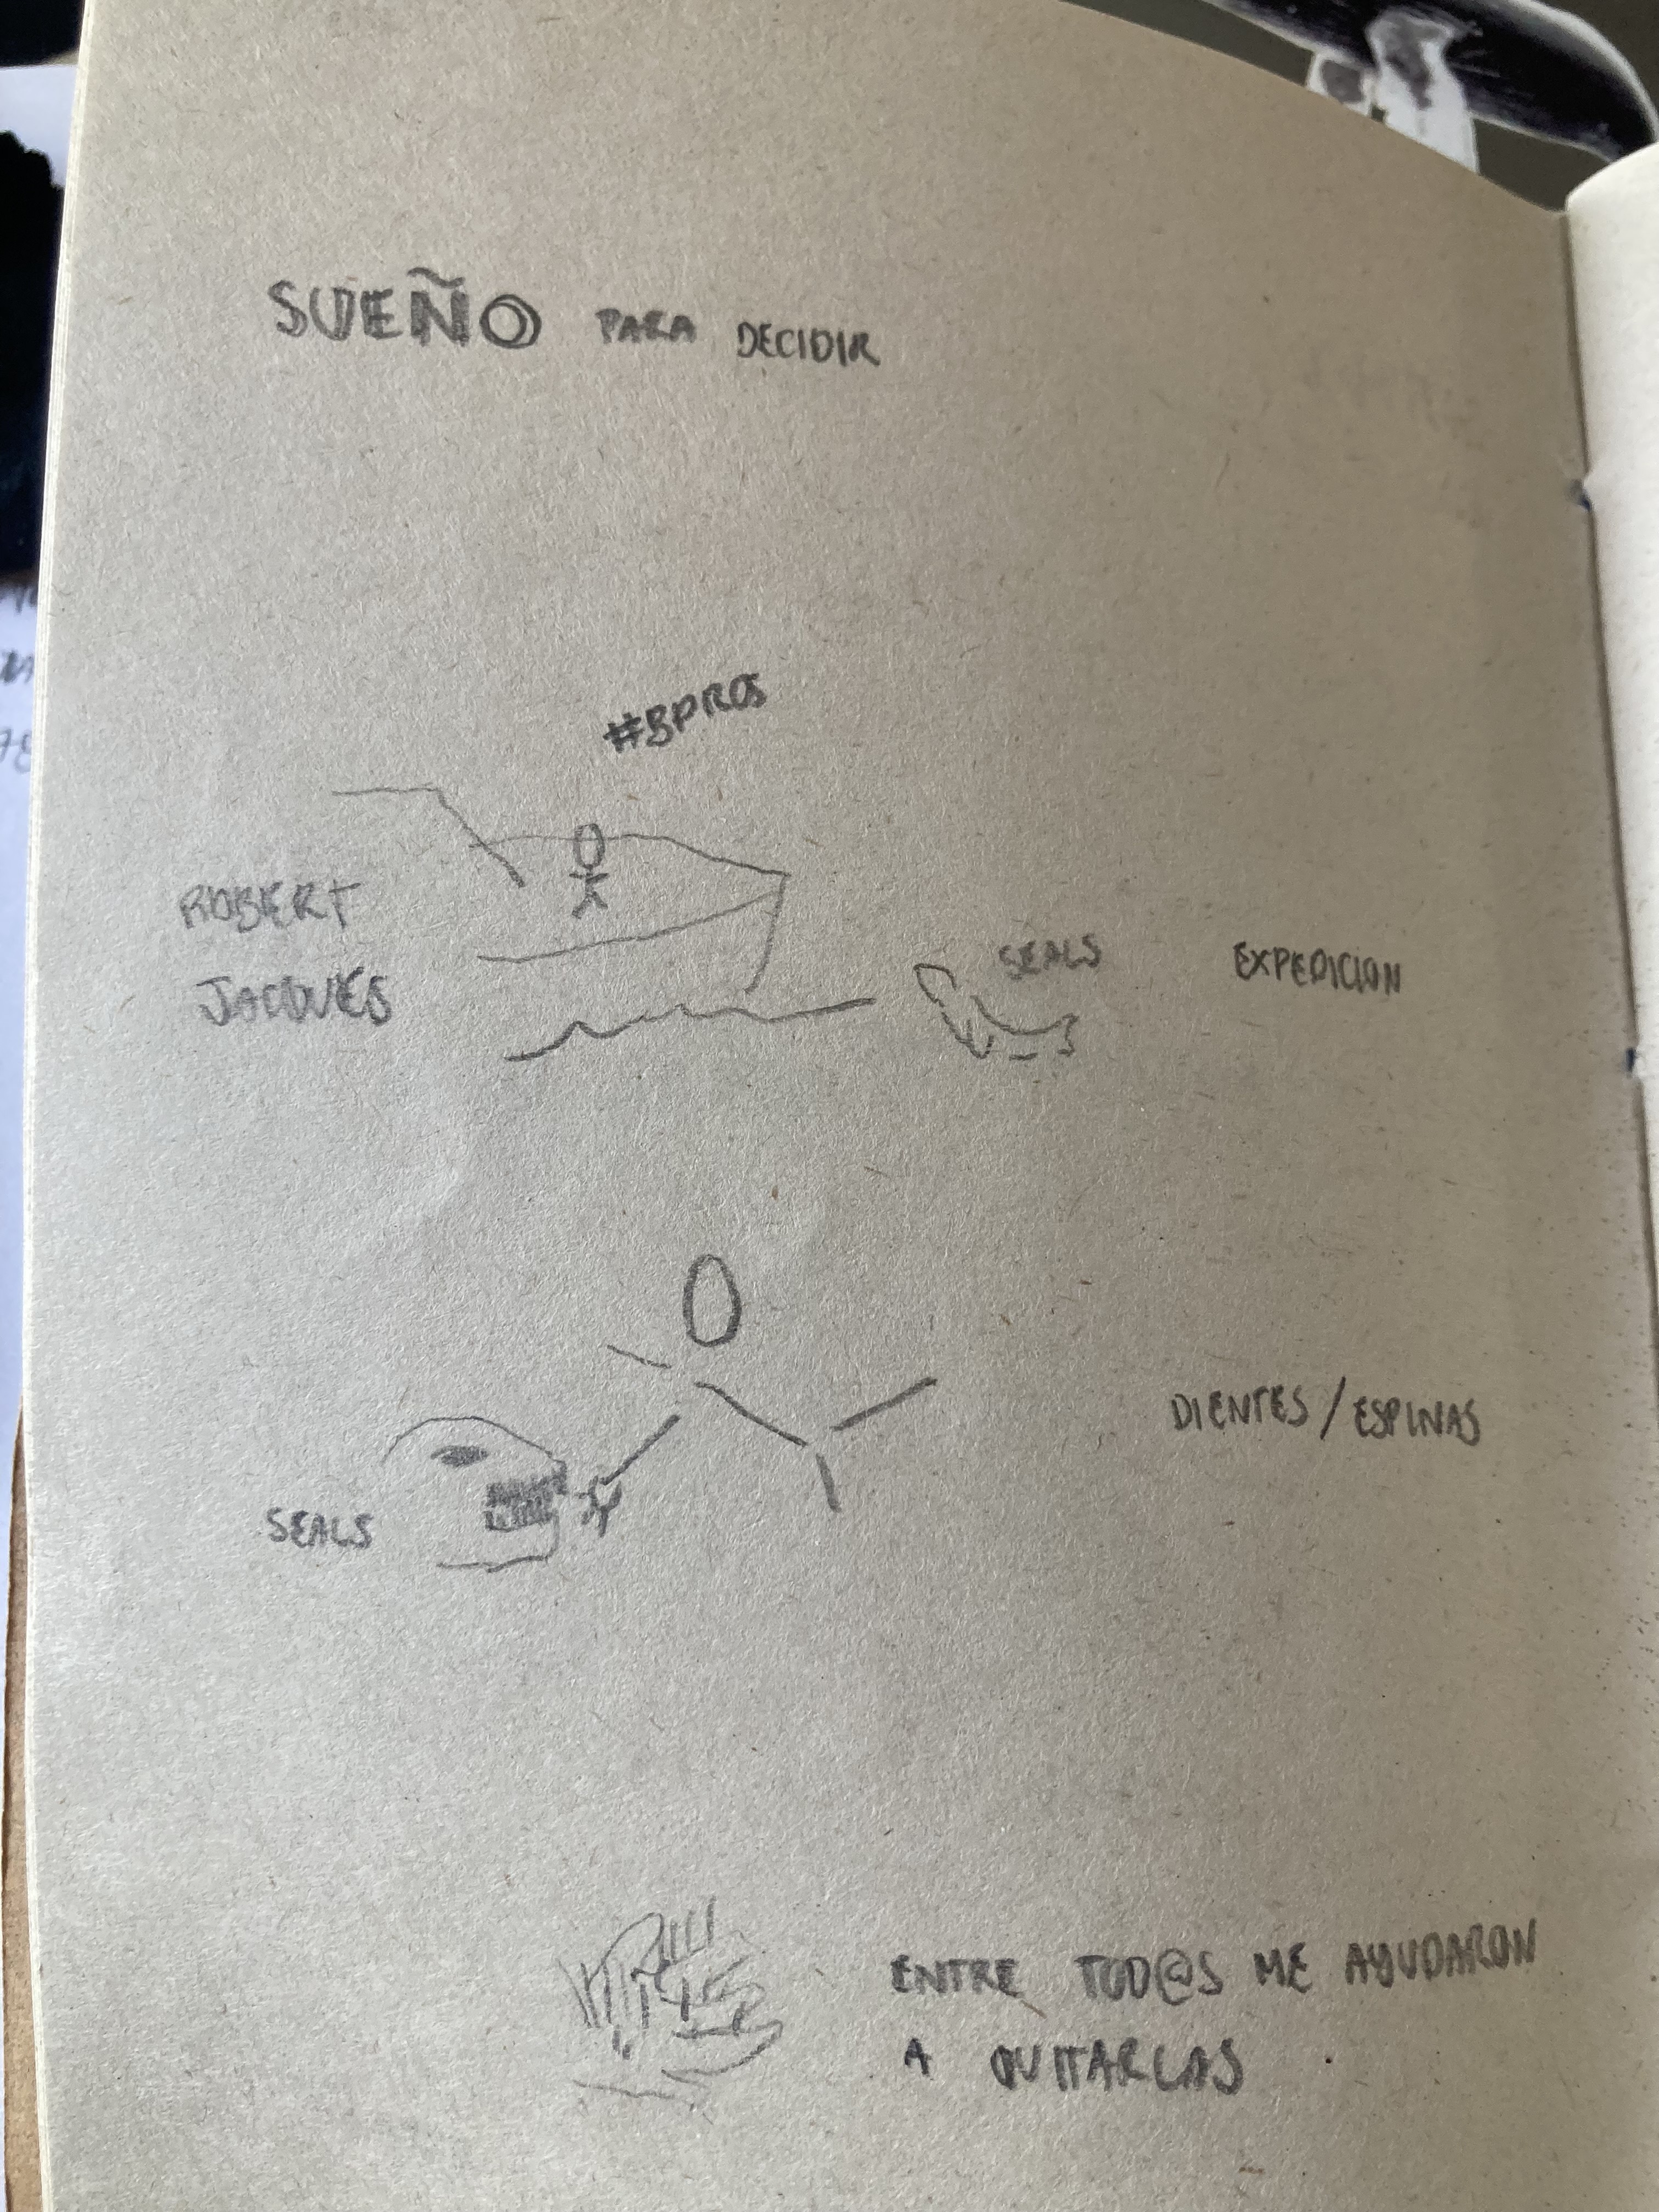 SUEÑO PARA DECIDIR
#BPROS
ROBERT
JACQUES
SEALS
EXPEDICION
DIENTES / ESPINAS
SEALS
ENTRE TOD@S ME AYUDARON
A QUITARLAS